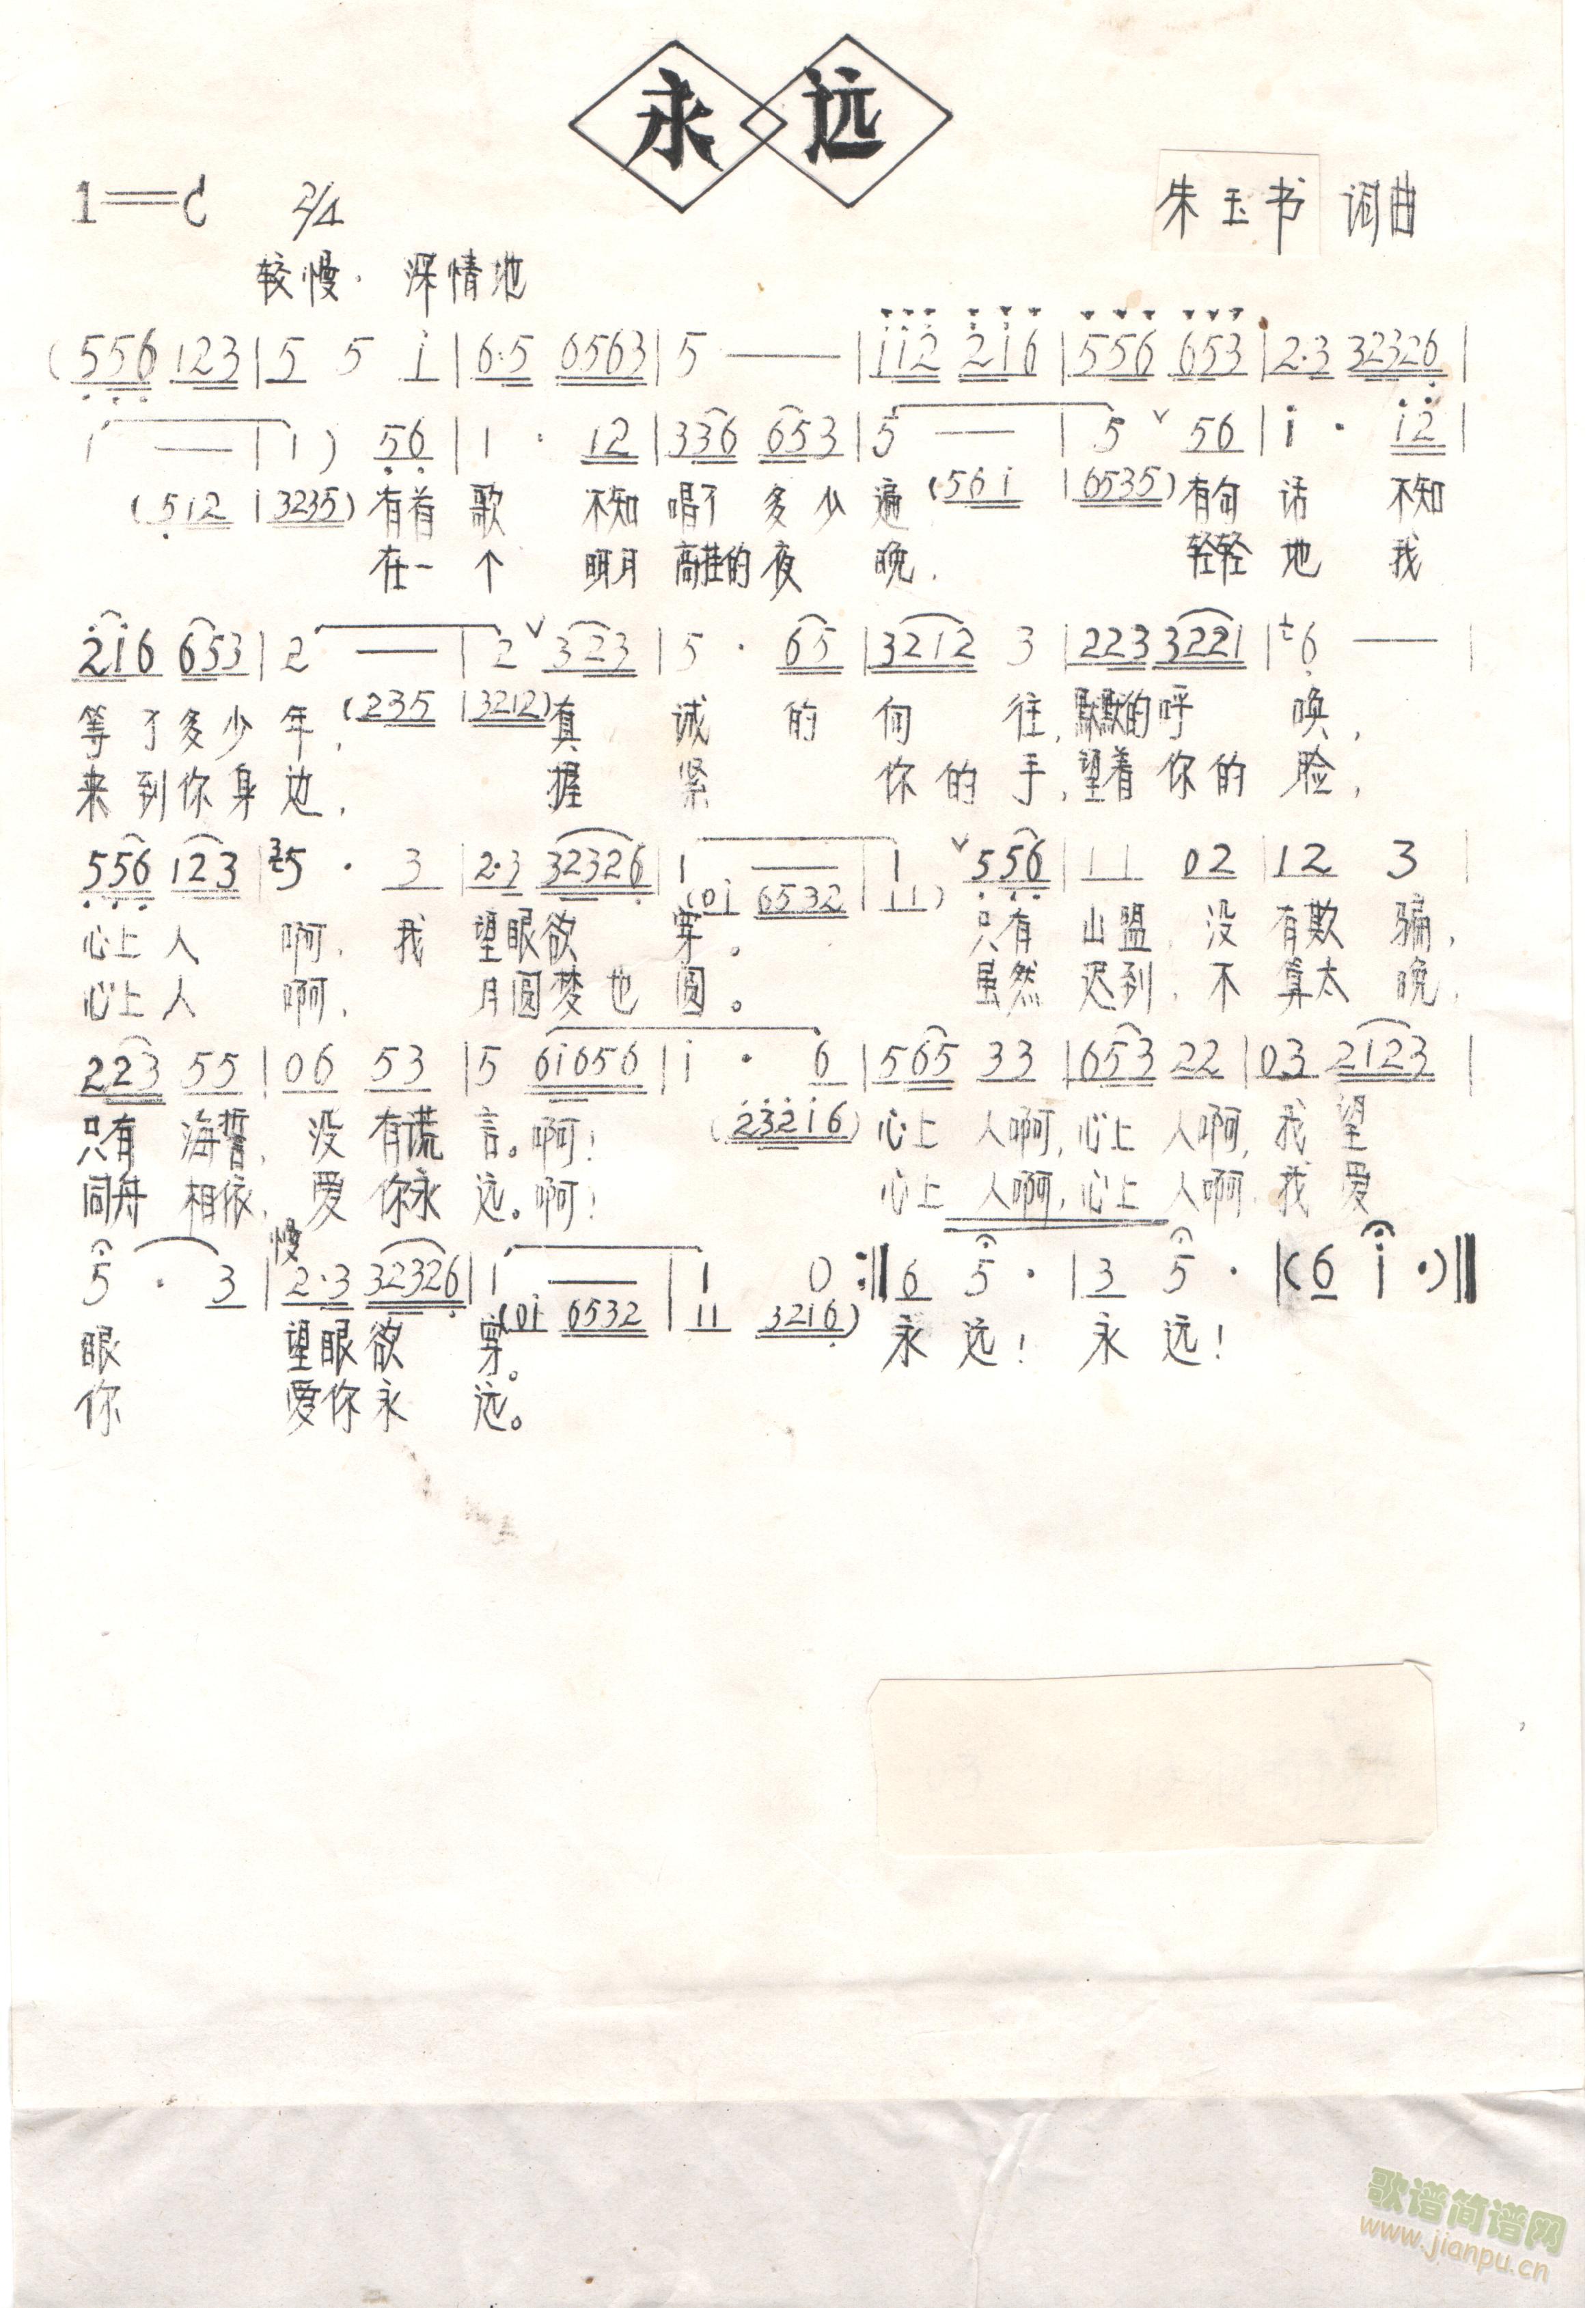 永远
1=C 2/4
朱玉书 词曲
较慢. 深情地
(556 123 | 5 5 i | 6·5 0563 | 5 — | i i 2 2 i 6 | 556 653 | 2·3 32326 |
1 — | 1 ) 56 | 1 · 12 | 336 653 | 5 — | 5 ∨ 56 | i · i2 |
(512 | 3235) (56i | 6535)
有首 歌 不知 唱了 多少 遍 有句 话 不知
在一 个 明月 高挂的 夜 晚. 轻轻 地 我
2i6 653 | 2 — | 2 ∨ 323 | 5 · 65 | 3212 3 | 223 3221 | 6 — |
(235 | 3212)
等了多少年, 真 诚 的 向 往, 默默的呼 唤,
来到你身边, 握 紧 你的手, 望着你的 脸,
556 123 | 5 · 3 | 2·3 32326 | 1 — | 1 ∨ 556 | 11 02 | 12 3 |
(0i 6532 | 11)
心上人 啊, 我 望眼欲 穿。 只有 山盟, 没 有欺 骗,
心上人 啊, 月圆梦也 圆。 虽然 迟到, 不 算太 晚,
223 55 | 06 53 | 5 6i656 | i · 6 | 565 33 | 653 22 | 03 2123 |
(232i6)
只有 海誓, 没 有谎 言。啊! 心上 人啊, 心上 人啊, 我 望
同舟 相依, 爱 你永 远。啊! 心上 人啊, 心上 人啊, 我 爱
慢
5 · 3 | 2·3 32326 | 1 — | 1 0 :‖ 6 5 · | 3 5 · | (6 i ·) ‖
(0i 6532 | 11 3216)
眼 望眼欲 穿。 永 远! 永 远!
你 爱你永 远。
歌谱简谱网
www.jianpu.cn